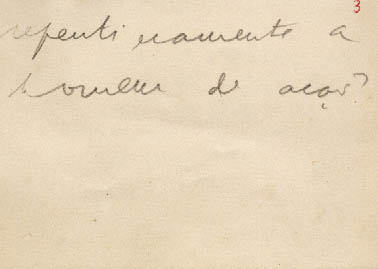 3
repentinamente a
homem d'acção